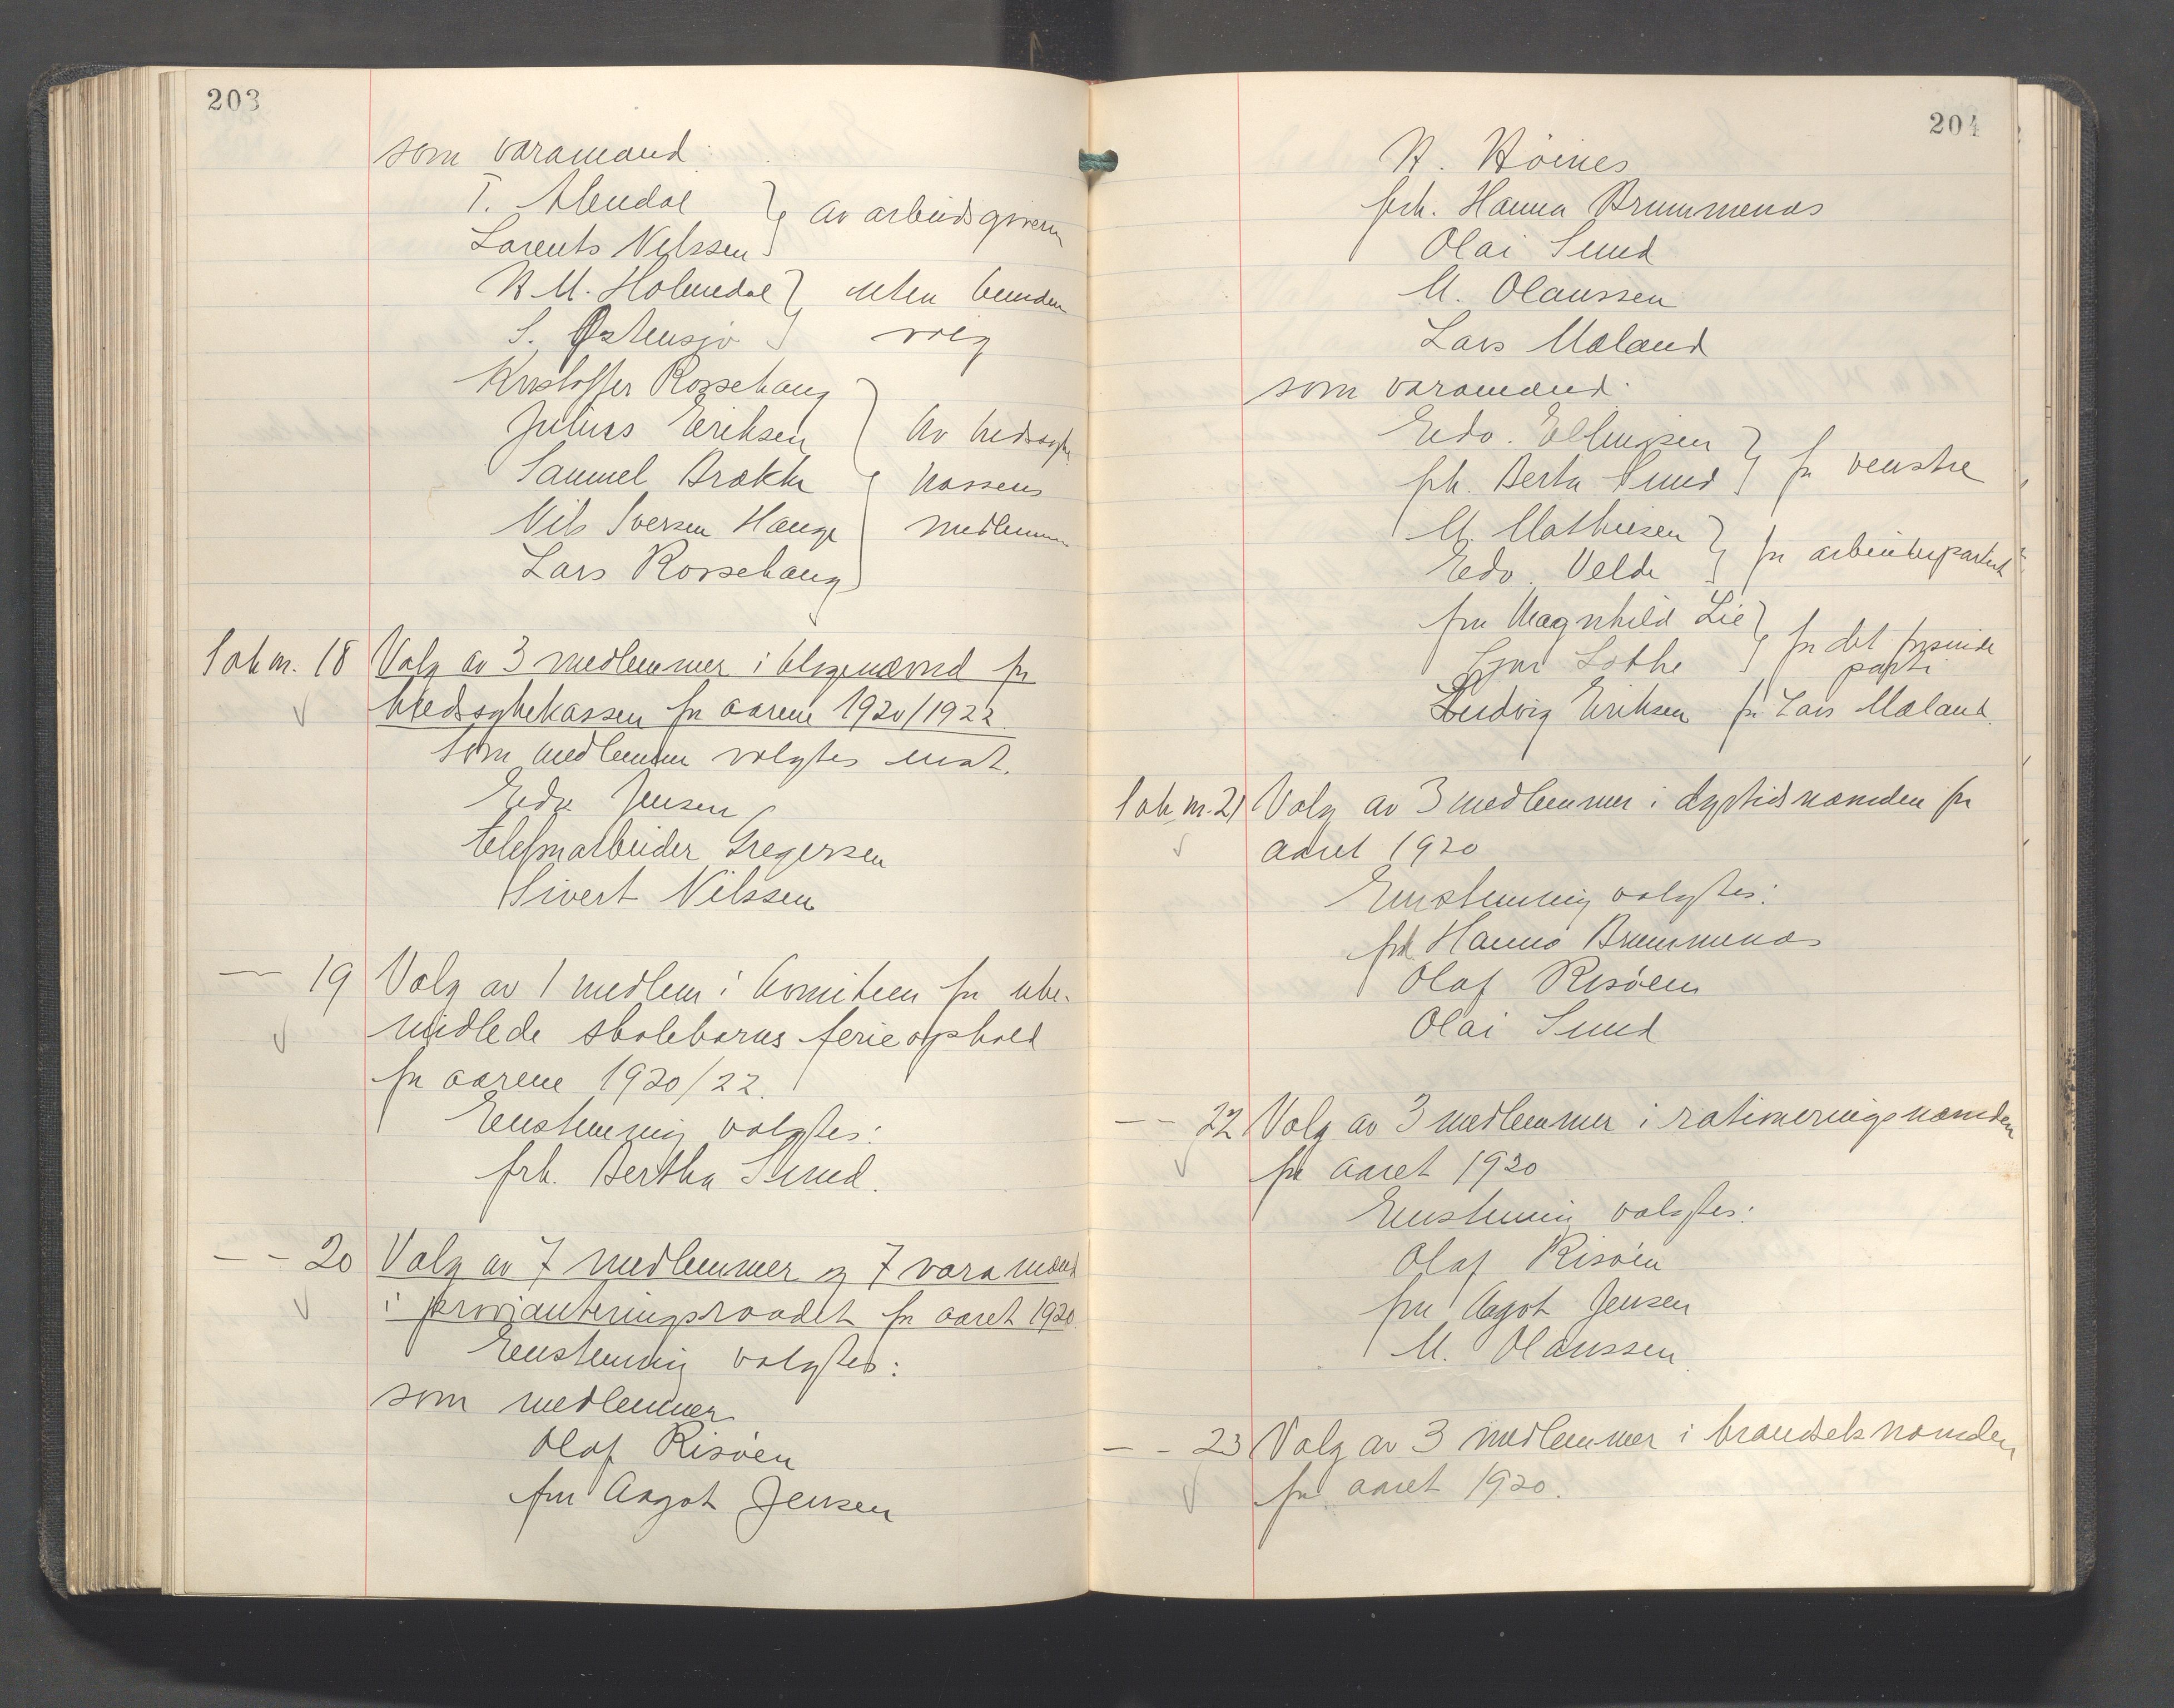 203
som varamænd:
T. Alendal } av arbeidsgivern
Lorents Nilssen
N. M. Holmedal } uten bunden
S. Østensjø valg
Kristoffer Rossehaug
Julius Eriksen } Av kredssyke
Samuel Brekke kassens
Nils Iversen Hauge medlemmer
Lars Rossehaug
Sak nr. 18 Valg av 3 medlemmer i klagenævnd for
kredssykekassen for aarene 1920/1922.
Som medlemmer valgtes enst.
Edv. Jensen
telefonarbeider Gregersen
Sivert Nilssen
— 19 Valg av 1 medlem i komiteen for ube-
midlede skolebarns ferieophold
for aarene 1920/22.
Enstemmig valgtes:
frk. Bertha Sund.
— - 20 Valg av 7 medlemmer og 7 varamænd
i provianteringsraadet for aaret 1920.
Enstemmig valgtes:
som medlemmer
Olaf Risøen
fru Aagot Jensen
204
N. Höines
frk. Hanna Brummenæs
Olai Sund
M. Olaussen
Lars Mæland
som varamænd:
Edv. Ellingsen } for venstre
frk. Berta Sund
M. Mathiesen } for arbeiderpartiet
Edv. Velde
fru Magnhild Lie } for det frisinde
Gjer Lothe parti
Ludvig Eriksen for Lars Mæland.
Sak nr. 21 Valg av 3 medlemmer i dyrtidsnæmden for
aaret 1920
Enstemmig valgtes:
frk Hanna Brummenæs
Olaf Risøen
Olai Sund
— - 22 Valg av 3 medlemmer i rationeringsnæmden
for aaret 1920
Enstemmig valgtes:
Olaf Risøen
fru Aagot Jensen
M. Olaussen.
— - 23 Valg av 3 medlemmer i brændselsnæmden
for aaret 1920.